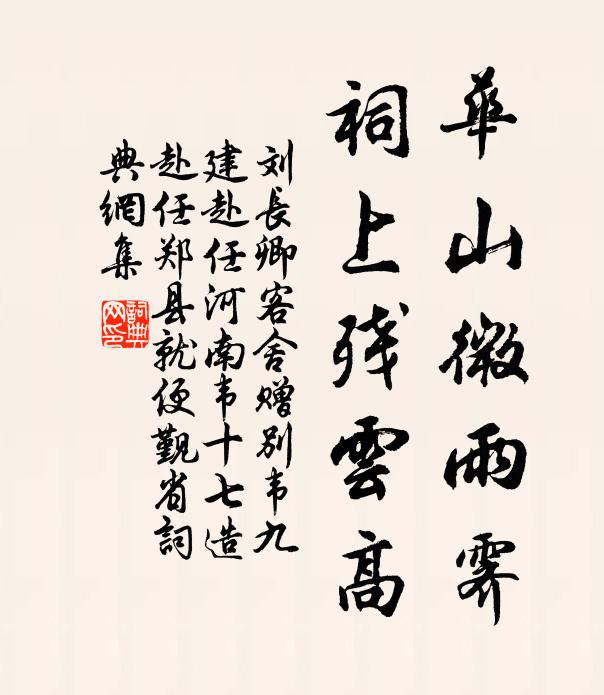 華山微雨霽
祠上残雲高
刘長卿客舍赠别韦九
建赴任河南韦十七造
赴任郑县就便觐省詞
典網集
詞典网印